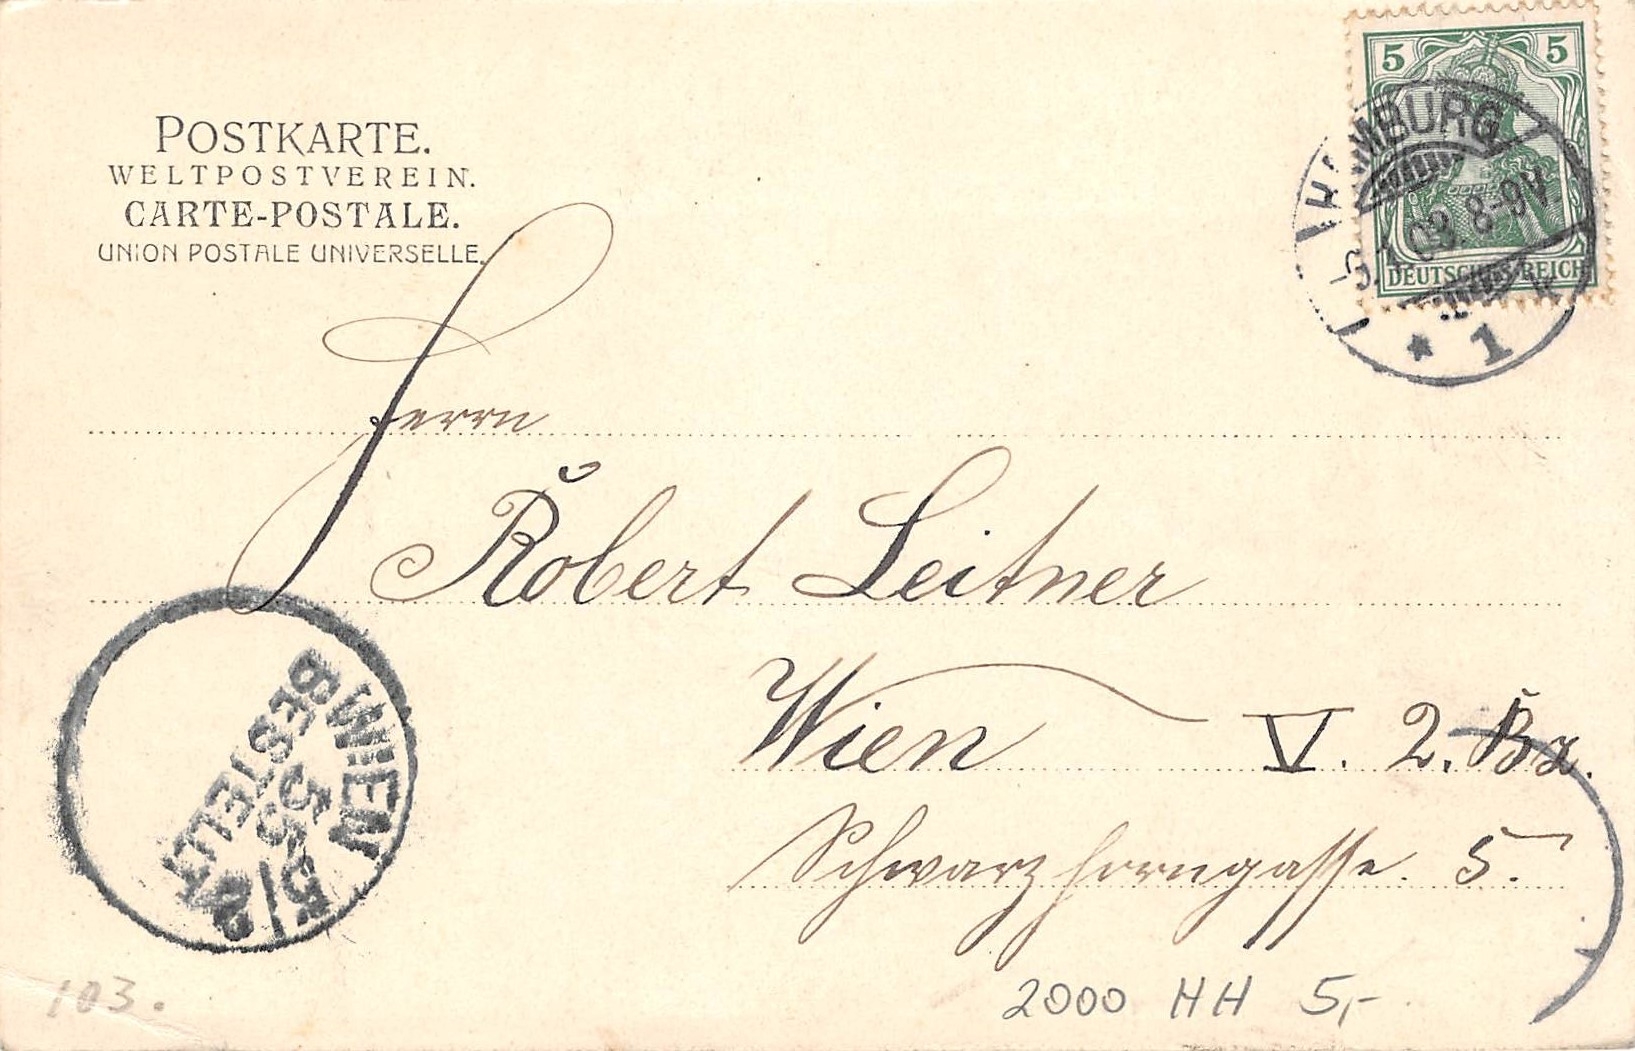 POSTKARTE.
WELTPOSTVEREIN.
CARTE-POSTALE.
UNION POSTALE UNIVERSELLE.
5 5
DEUTSCHES REICH
HAMBURG
8-9V
* 1
Herrn
Robert Leitner
Wien V. 2. Bz.
Schwarzhorngasse. 5.
WIEN 5/2
BESTELLT
103.
2000 HH 5,-